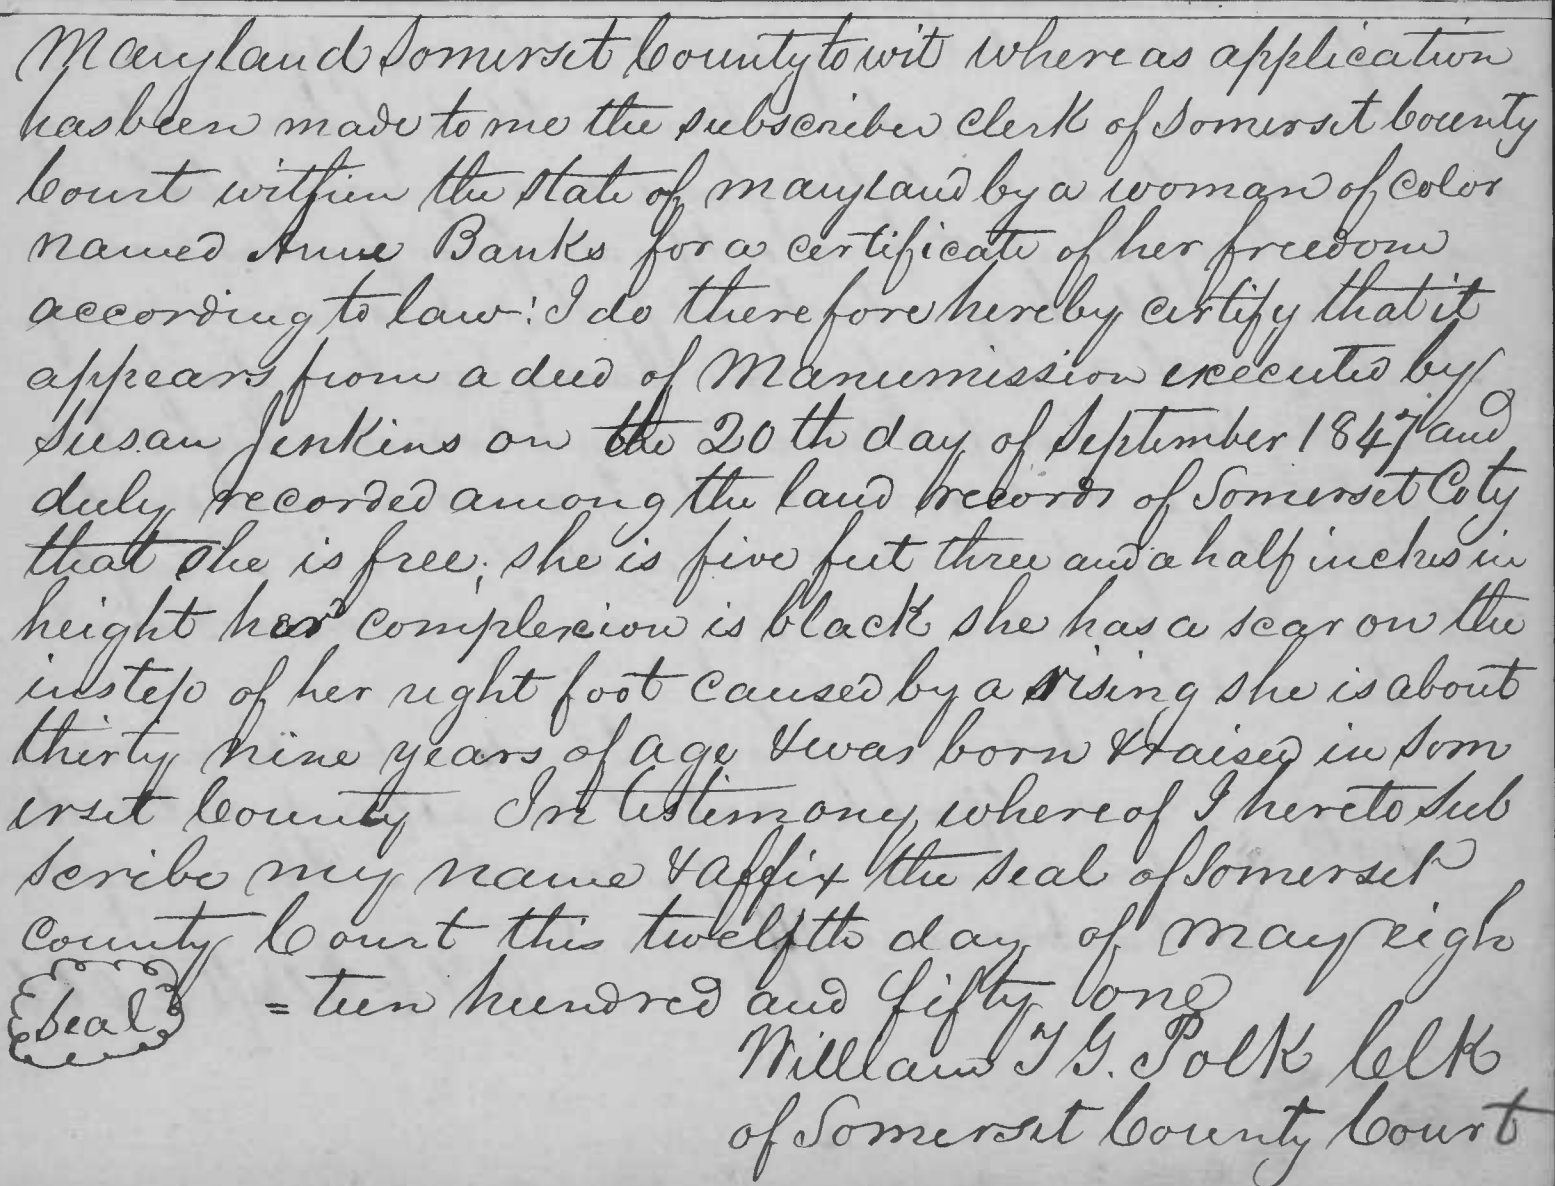 Maryland Somerset County to wit where as application
has been made to me the subscriber clerk of Somerset County
Court within the state of maryland by a woman of color
named Anne Banks for a certificate of her freedom
according to law: I do therefore hereby certify that it
appears from a deed of Manumission executed by
Susan Jenkins on the 20th day of September 1847 and
duly recorded among the land records of Somerset Coty
that she is free; she is five feet three and a half inches in
height her complexion is black she has a scar on the
instep of her right foot caused by a rising she is about
thirty nine years of age & was born & raised in Som
erset County In testimony whereof I hereto sub
scribe my name & affix the seal of Somerset
county Court this twelfth day of may eigh
= teen hundred and fifty one
Seal
William T G. Polk Clk
of Somerset County Court